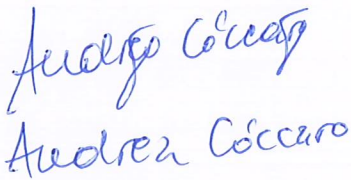 Andrea Cóccaro
Andrea Cóccaro